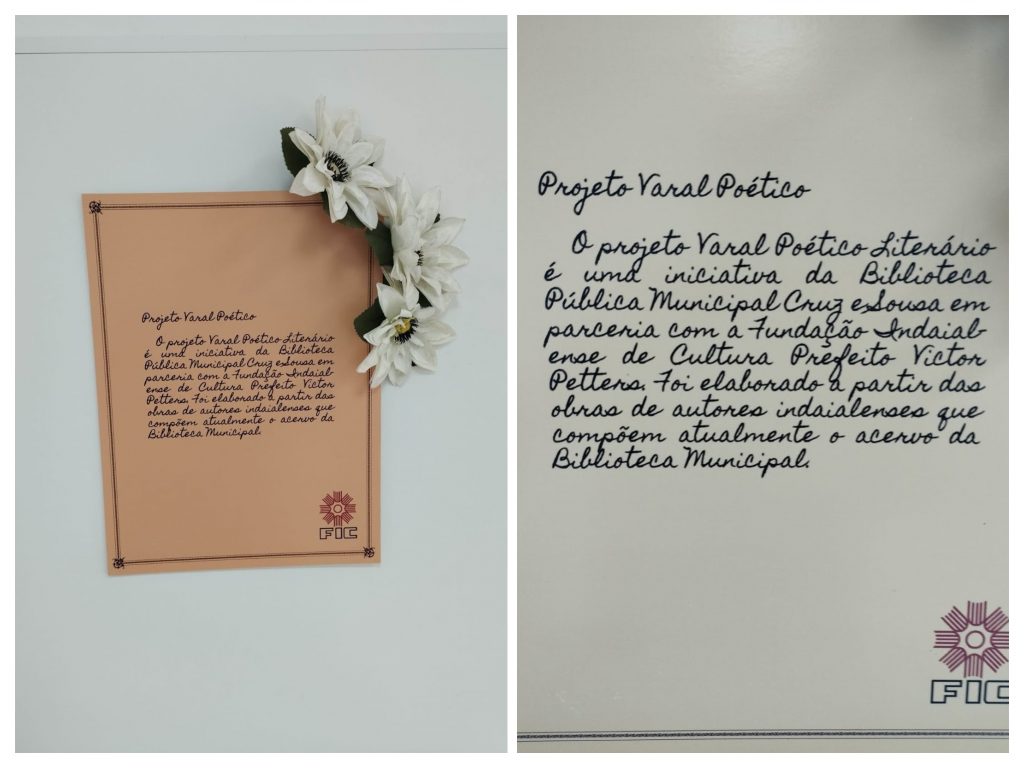 Projeto Varal Poético
O projeto Varal Poético Literário
é uma iniciativa da Biblioteca
Pública Municipal Cruz e Sousa em
parceria com a Fundação Indaial-
ense de Cultura Prefeito Victor
Petters. Foi elaborado a partir das
obras de autores indaialenses que
compõem atualmente o acervo da
Biblioteca Municipal.
FIC
Projeto Varal Poético
O projeto Varal Poético Literário
é uma iniciativa da Biblioteca
Pública Municipal Cruz e Sousa em
parceria com a Fundação Indaial-
ense de Cultura Prefeito Victor
Petters. Foi elaborado a partir das
obras de autores indaialenses que
compõem atualmente o acervo da
Biblioteca Municipal.
FIC